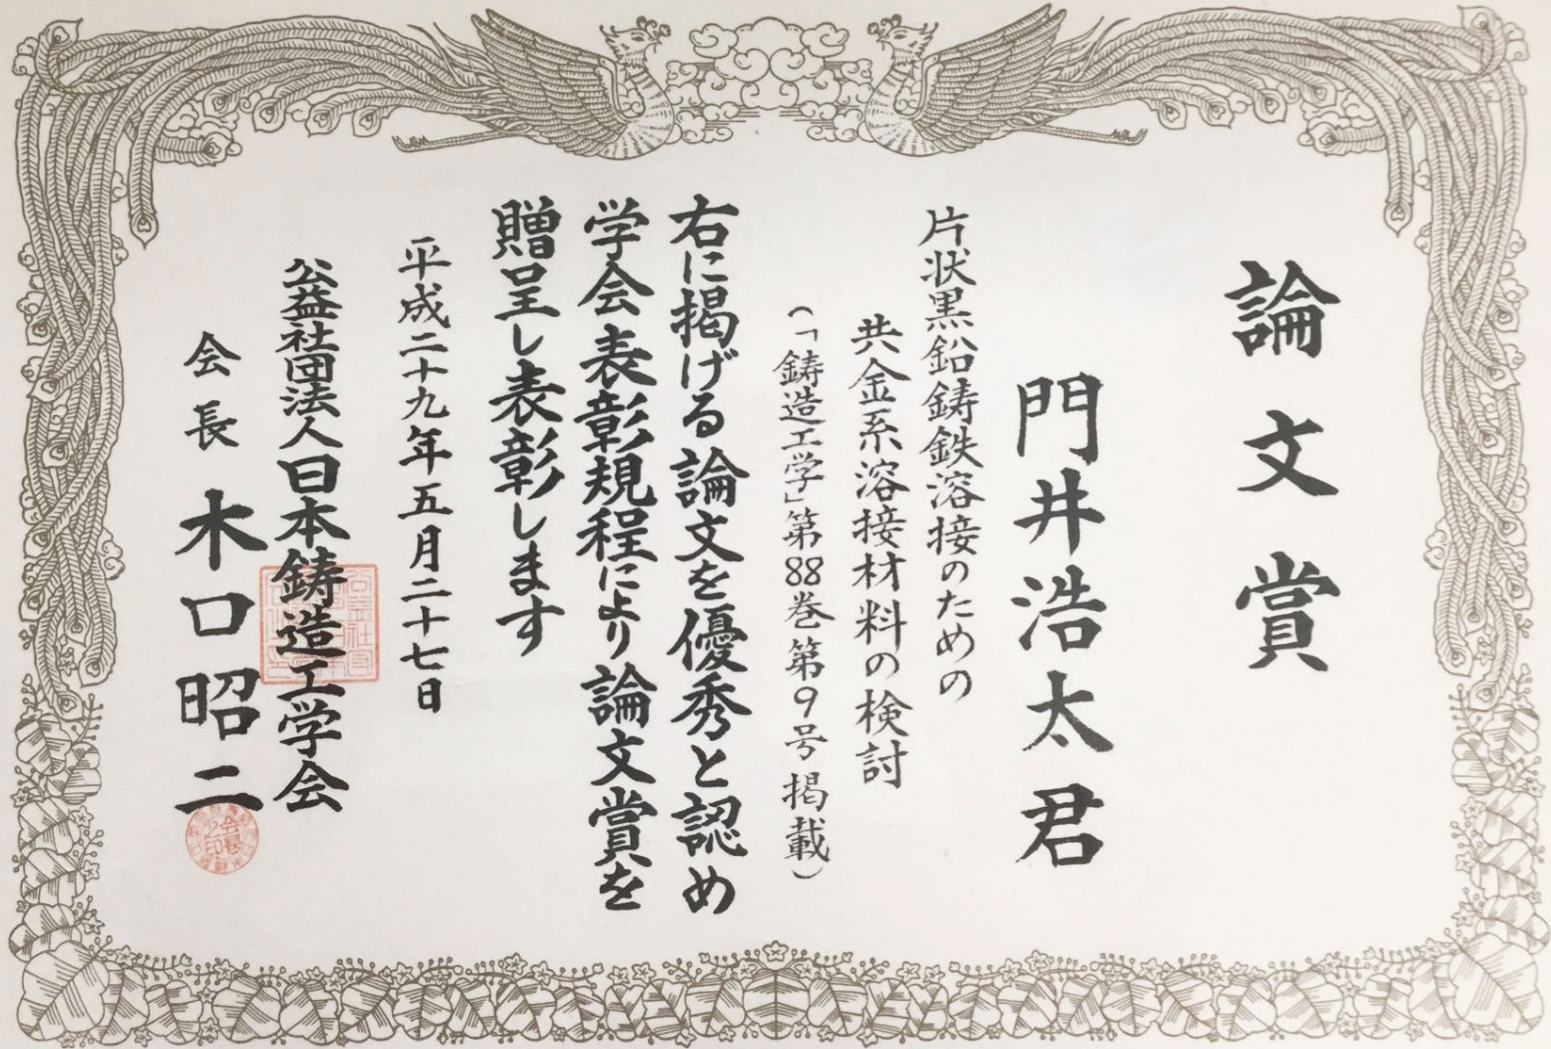 論文賞
門井浩太君
片状黒鉛鋳鉄溶接のための
共金系溶接材料の検討
(「鋳造工学」第88巻第9号掲載)
右に掲げる論文を優秀と認め
学会表彰規程により論文賞を
贈呈し表彰します
平成二十九年五月二十七日
公益社団法人日本鋳造工学会
会長 木口昭二